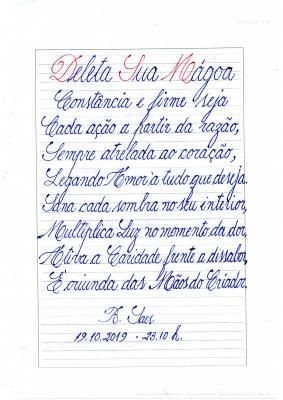 Deleta Sua Mágoa
Constância e firme seja
Cada ação a partir da razão,
Sempre atrelada ao coração,
Legando Amor a tudo que deseja.
Sana cada sombra no seu interior,
Multiplica Luz no momento da dor,
Ativa a Caridade frente a dissabor,
E oriunda das Mãos do Criador.
B. Saes
19.10.2019 - 23.10 h.